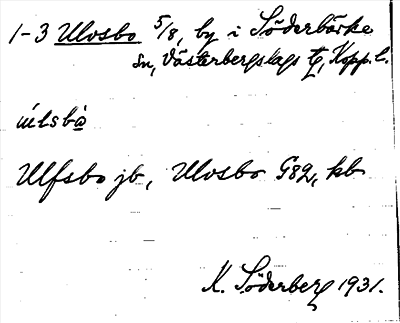 1-3 Ulvsbo 5/8, by i Söderbärke
sn, Västerbergslags tg, Kopp. l.
úlsbò
Ulfsbo jb, Ulvsbo G82, kb
K. Söderberg 1931.